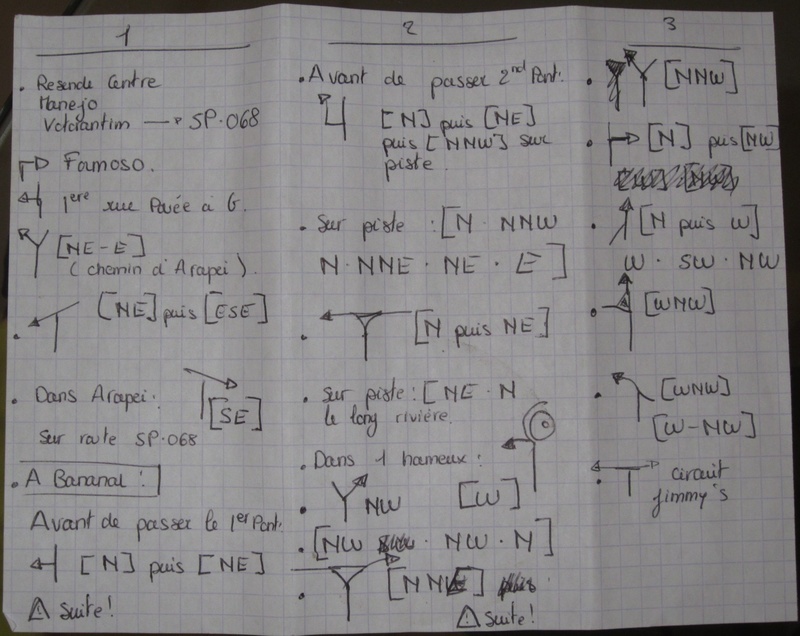 1
. Resende Centre
Manejo
Votorantim → SP.068
Famoso.
1ere rue Pavée à G.
[NE-E]
(chemin d'Arapei).
[NE] puis [ESE]
. Dans Arapei:
[SE]
Sur route SP.068
. A Bananal:
Avant de passer le 1er Pont:
[N] puis [NE]
⚠ Suite!
2
. Avant de passer 2nd Pont:
[N] puis [NE]
puis [NNW] sur
piste.
. Sur piste : [N. NNW
N. NNE. NE. E]
[N puis NE]
. Sur piste: [NE. N
le long rivière.
. Dans 1 hameux:
NW [W]
. [NW . NW. N]
[NNE]
⚠ Suite!
3
. [NNW]
. [N] puis [NW]
. [N puis W]
W. SW. NW
. [WNW]
. [WNW]
[W-NW]
. circuit
Jimmy's